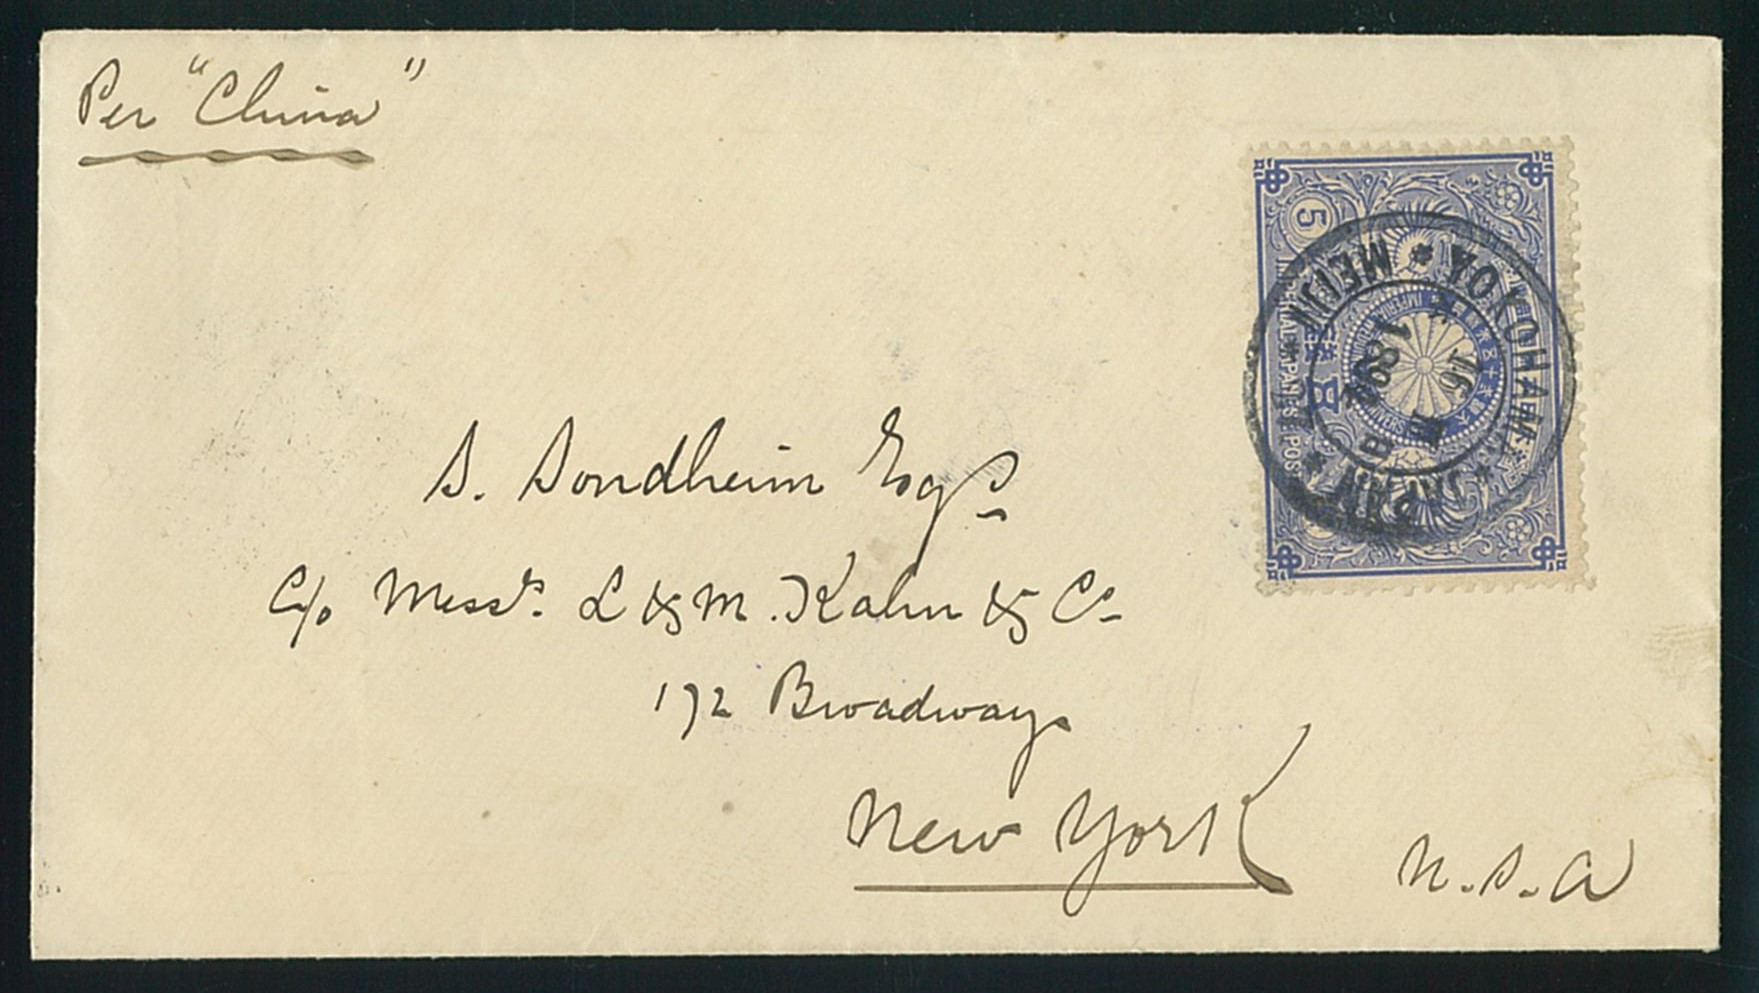 Per "China"
S. Sondheim Esqr
C/o Messrs. L & M. Kahn & Co
172 Broadway
New York
U.S.A
5
IMPERIAL JAPANESE POST
YOKOHAMA
JAPAN
MEIJI
16
1892